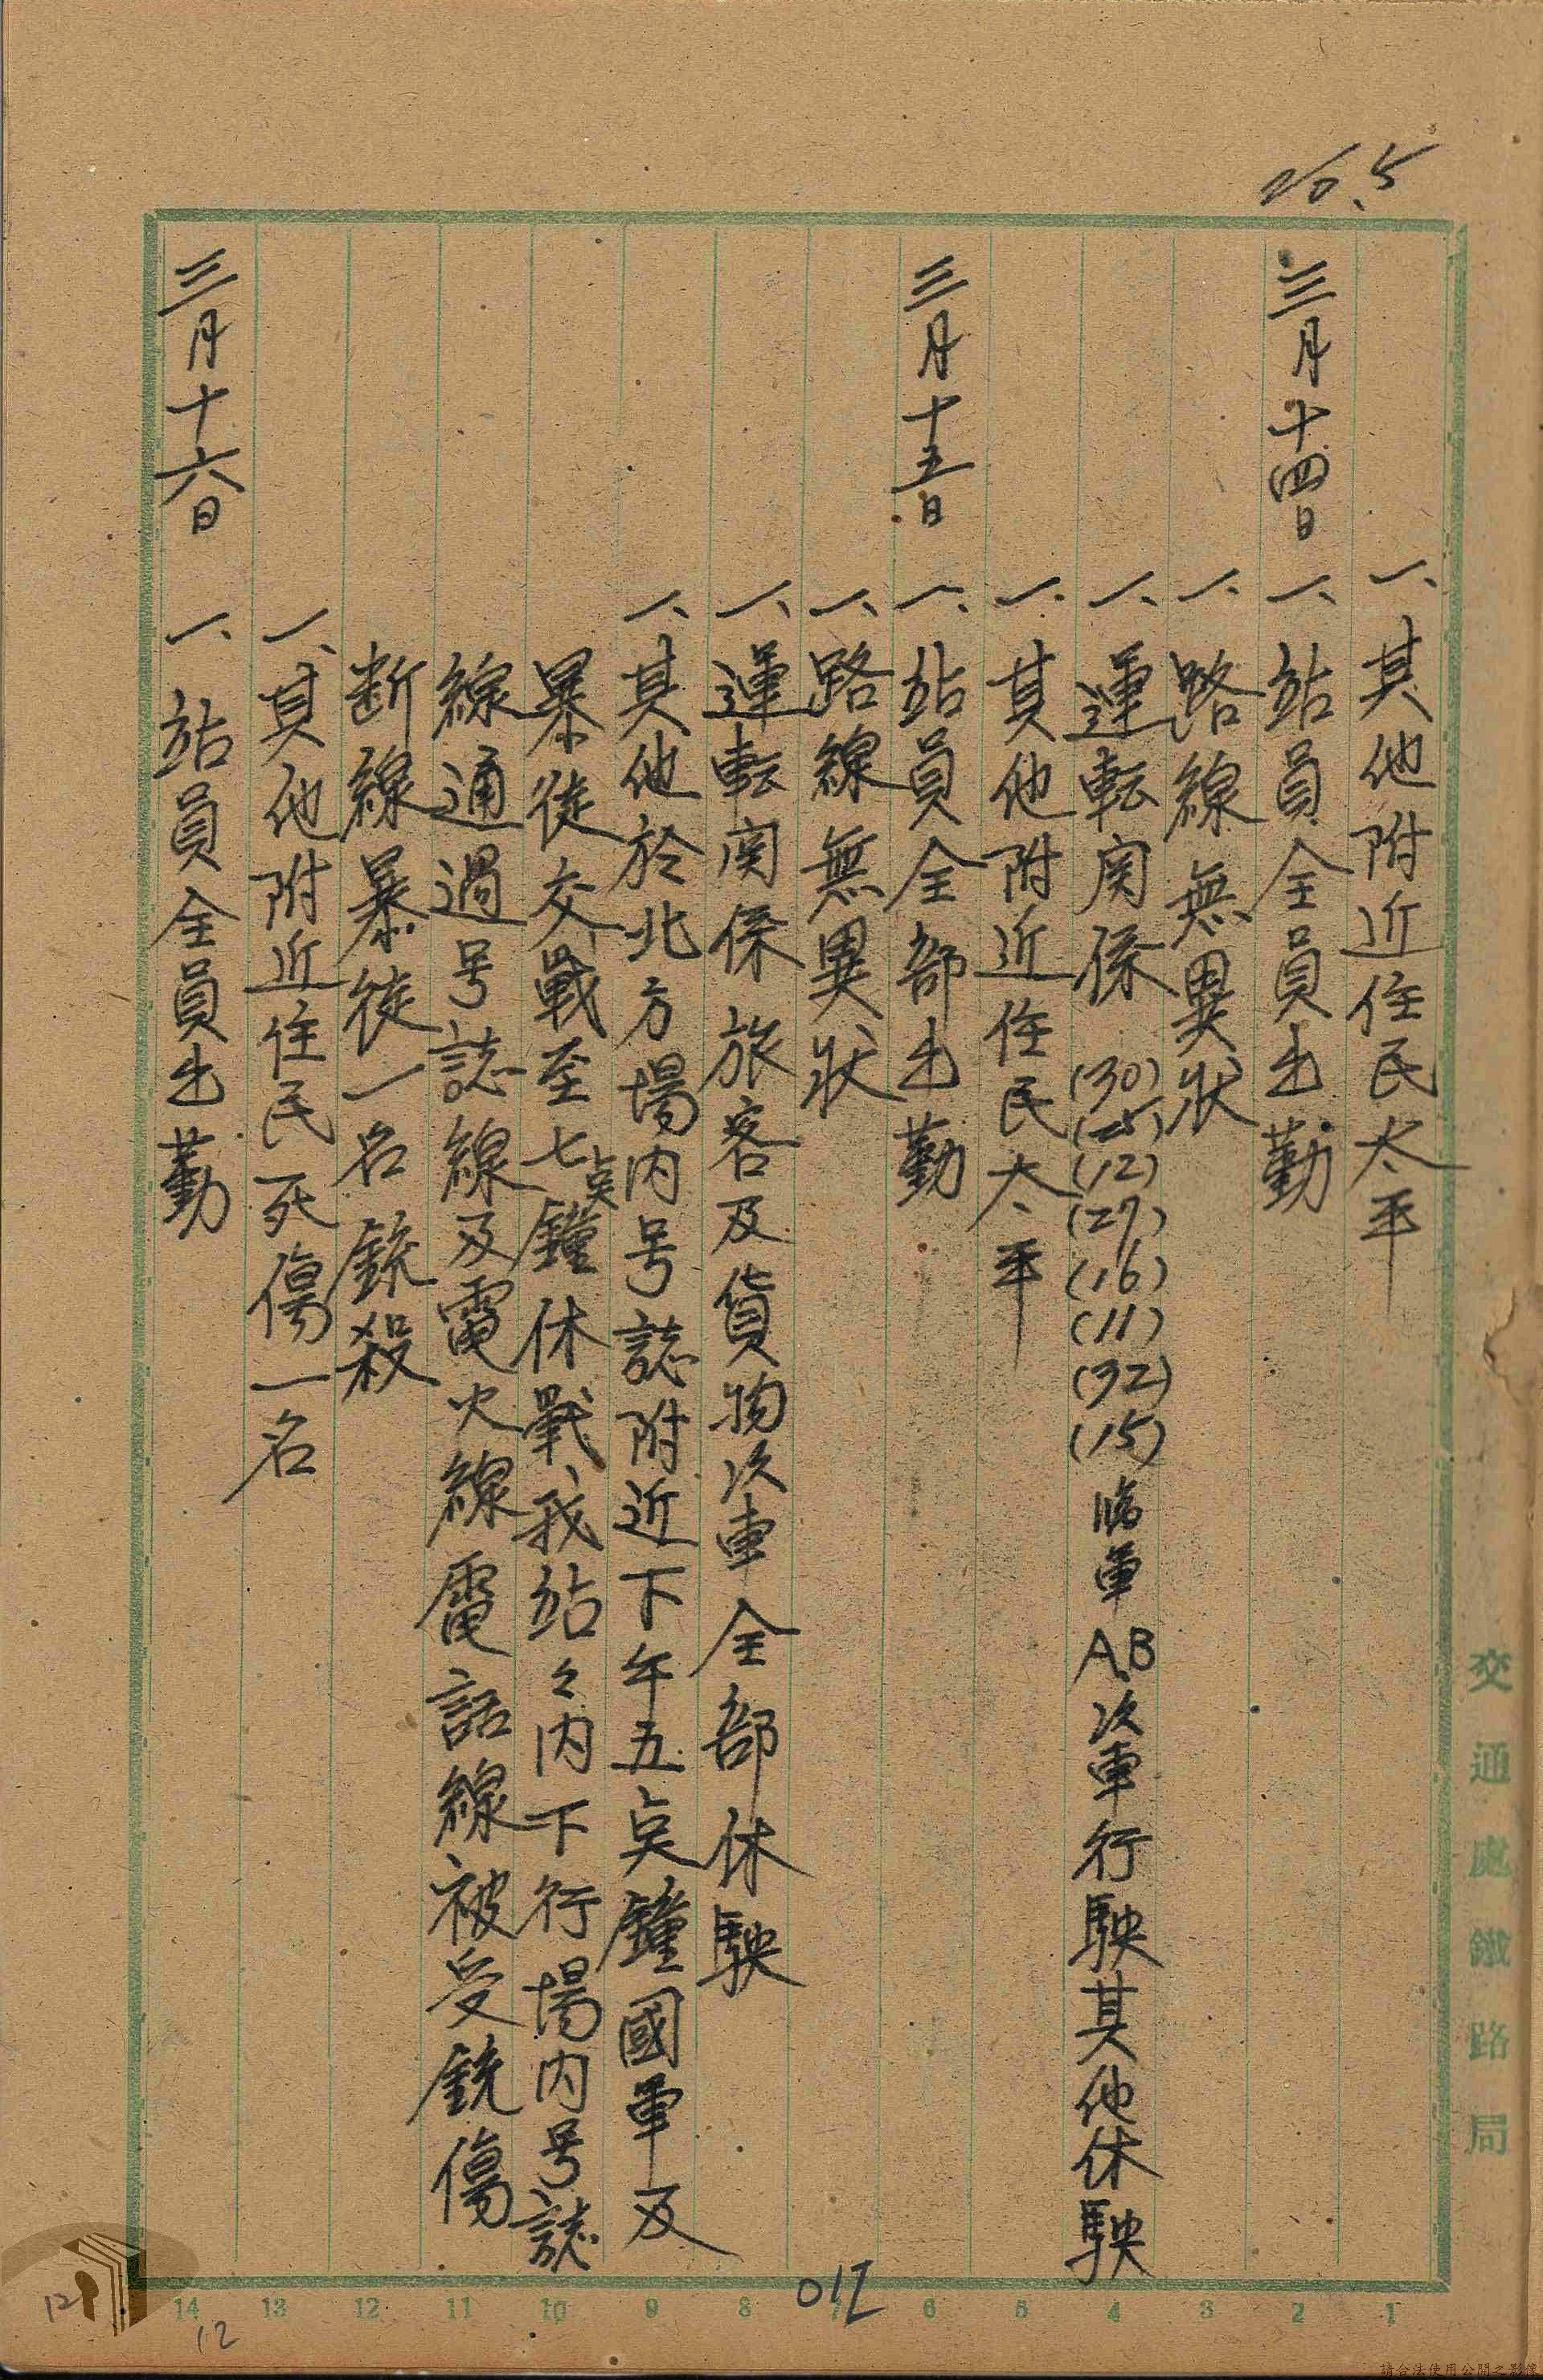 20.5
一、其他附近住民太平
三月十四日 一、站員全員出勤
一、路線無異狀
一、運転関係 (30)(25)(12)(27)(16)(11)(32)(15) 臨軍A.B次車行駛其他休駛
一、其他附近住民太平
三月十五日 一、站員全部出勤
一、路線無異狀
一、運転関係旅客及貨物次車全部休駛
一、其他於北方場内号誌附近下午五点鐘國軍及
暴徒交戰至七点鐘休戰、我站々内下行場内号誌
線通過号誌線及電火線電話線被受銃傷
断線暴徒一名銃殺
一、其他附近住民死傷一名
三月十六日 一、站員全員出勤
交通處鐵路局
14 13 12 11 10 9 8 7 6 5 4 3 2 1
012
12
12
請合法使用公開之影像